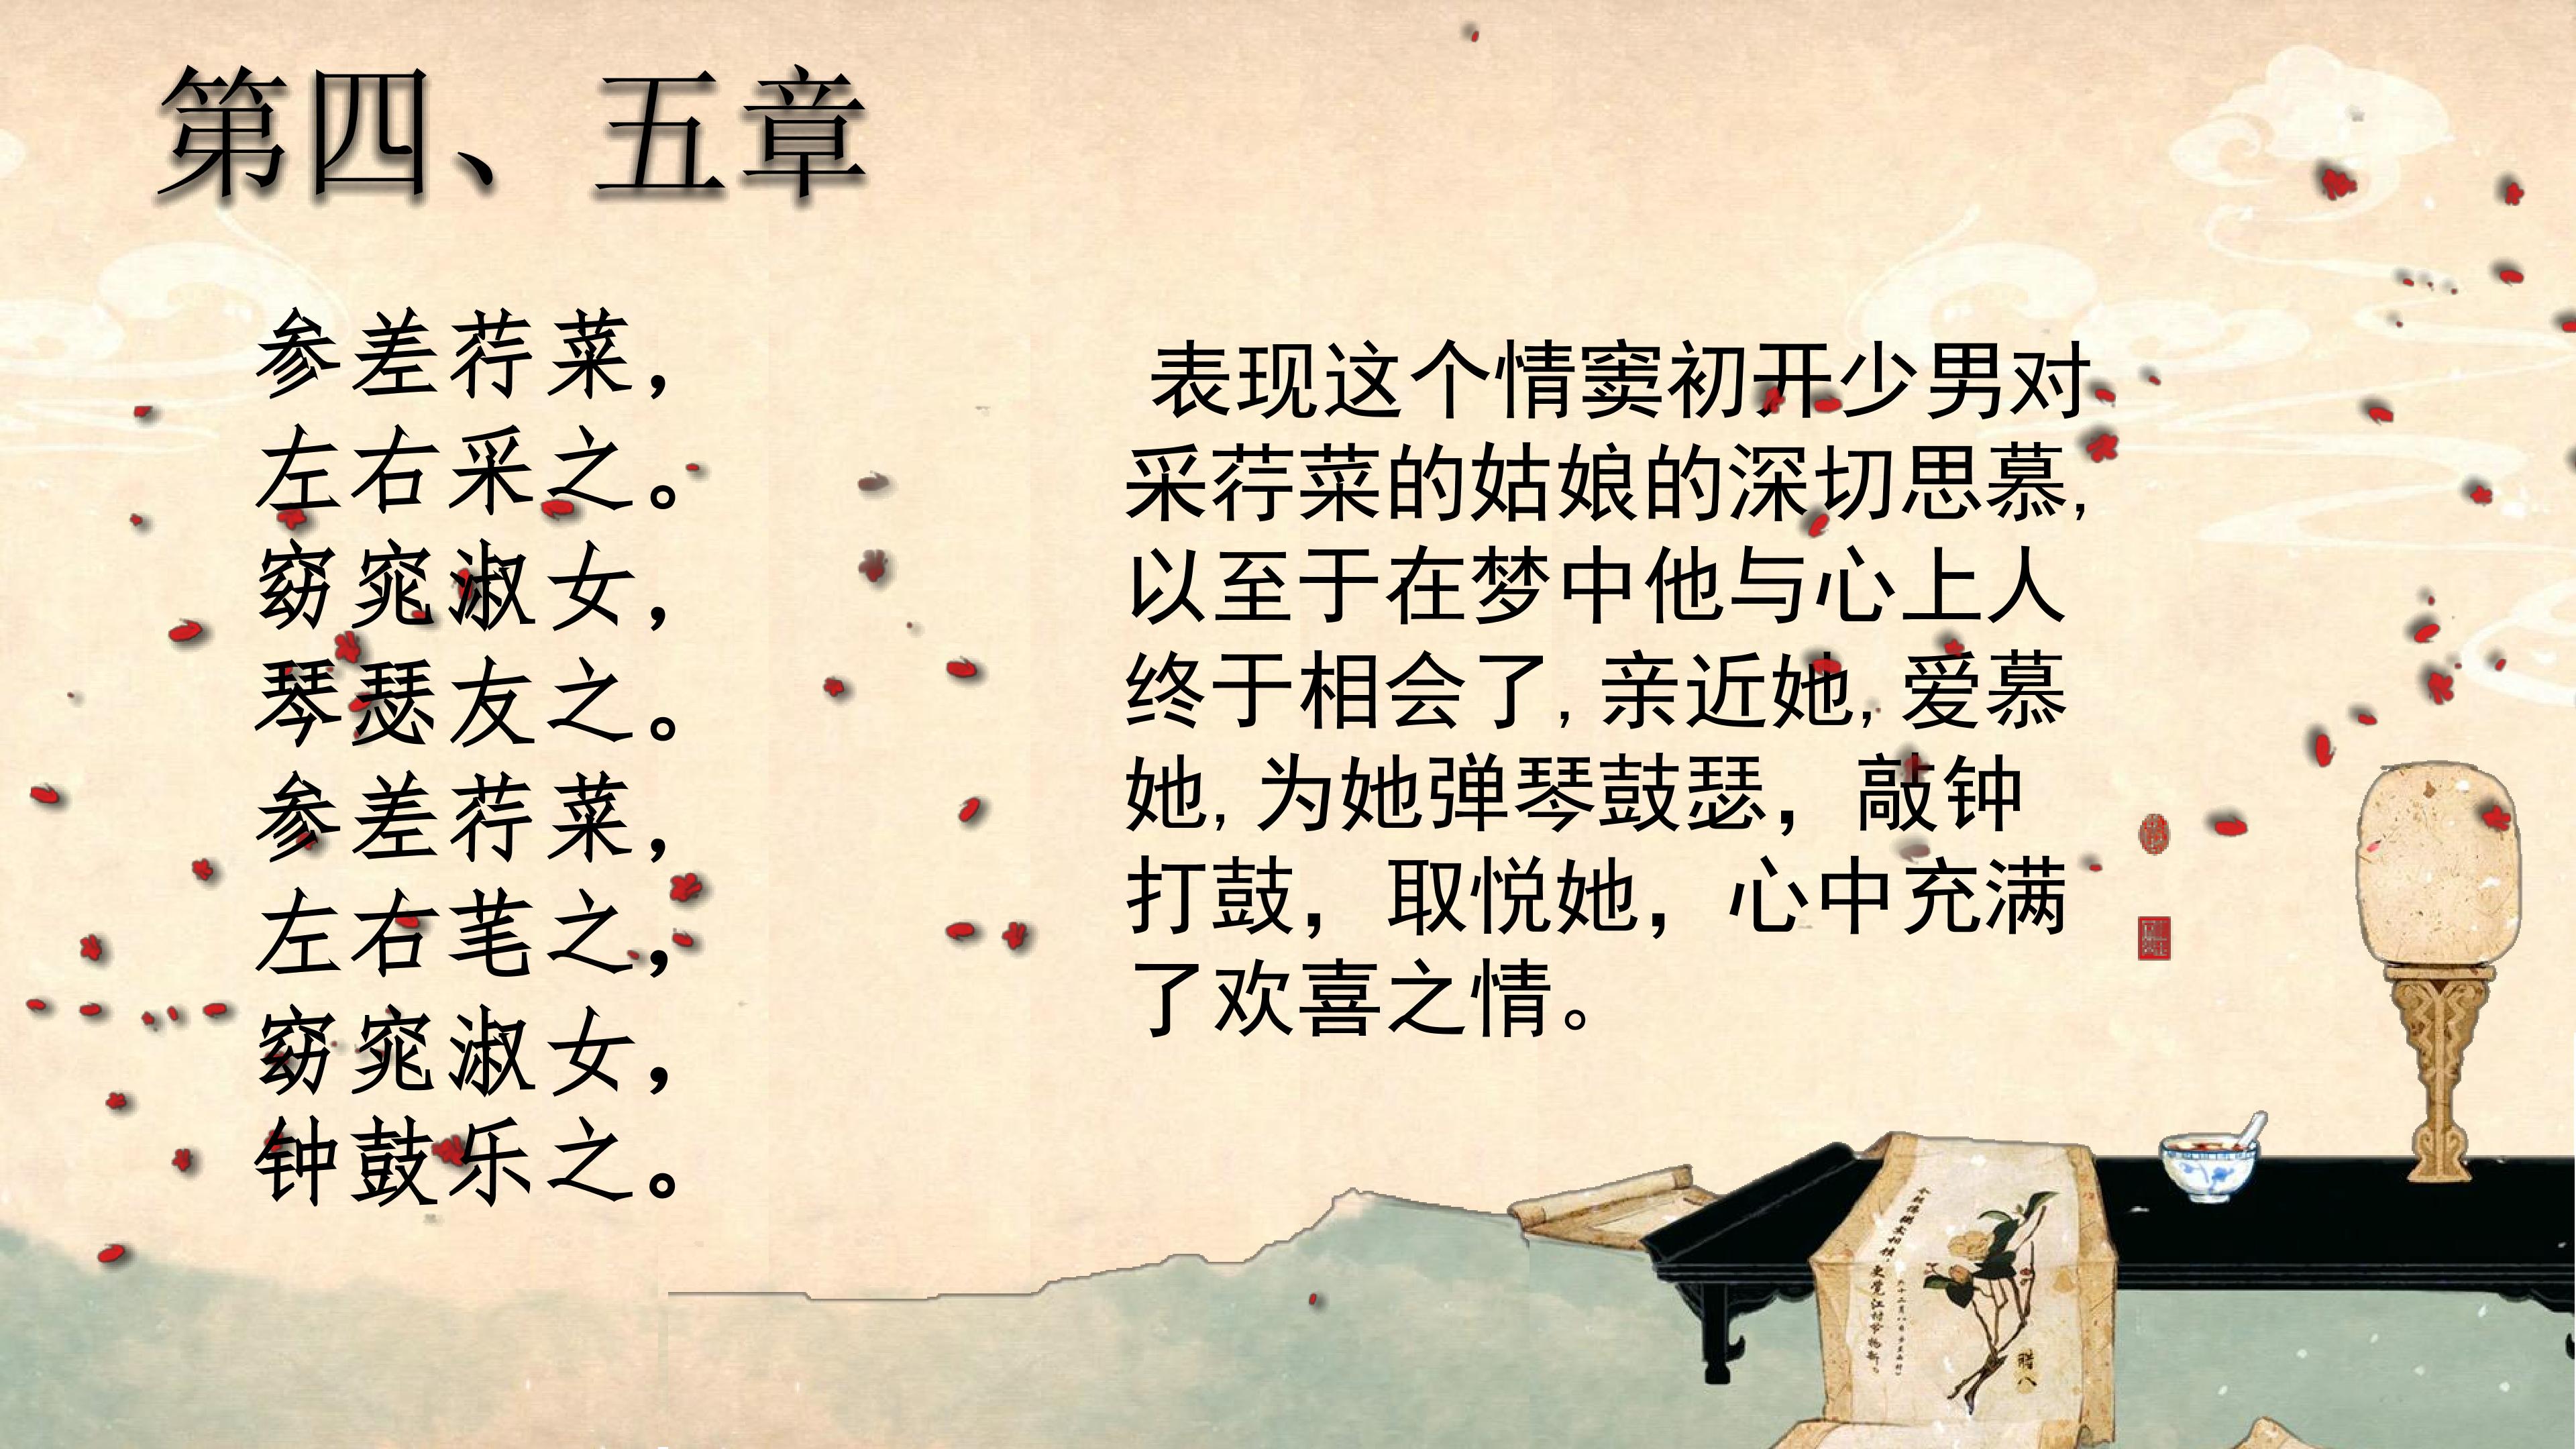 第四、五章
参差荇菜，
左右采之。
窈窕淑女，
琴瑟友之。
参差荇菜，
左右芼之，
窈窕淑女，
钟鼓乐之。
表现这个情窦初开少男对
采荇菜的姑娘的深切思慕,
以至于在梦中他与心上人
终于相会了,亲近她,爱慕
她,为她弹琴鼓瑟，敲钟
打鼓，取悦她，心中充满
了欢喜之情。
腊八